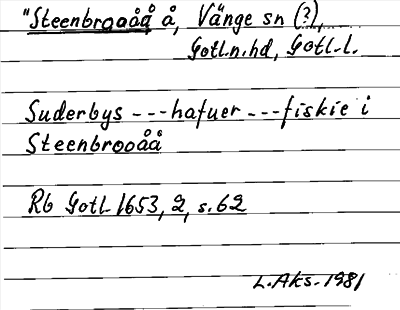 "Steenbroaåå å, Vänge sn (?),
Gotl.n.hd, Gotl.l.
Suderbys ---hafuer ---fiskie i
Steenbrooåå
Rb Gotl 1653, 2, s. 62
L. Aks. 1981